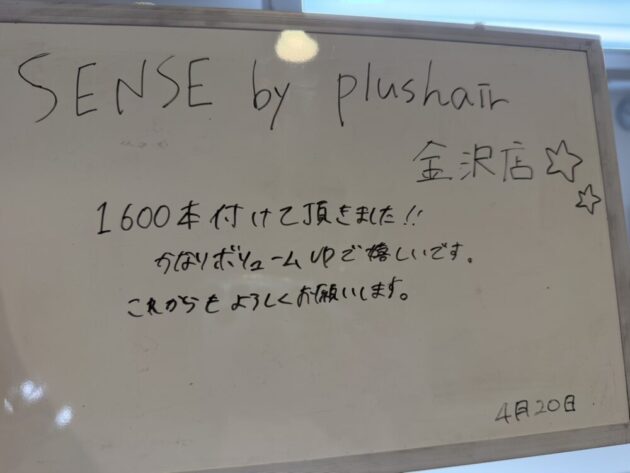 SENSE by plushair
金沢店☆☆
1600本付けて頂きました!!
かなりボリュームUPで嬉しいです。
これからもよろしくお願いします。
4月20日